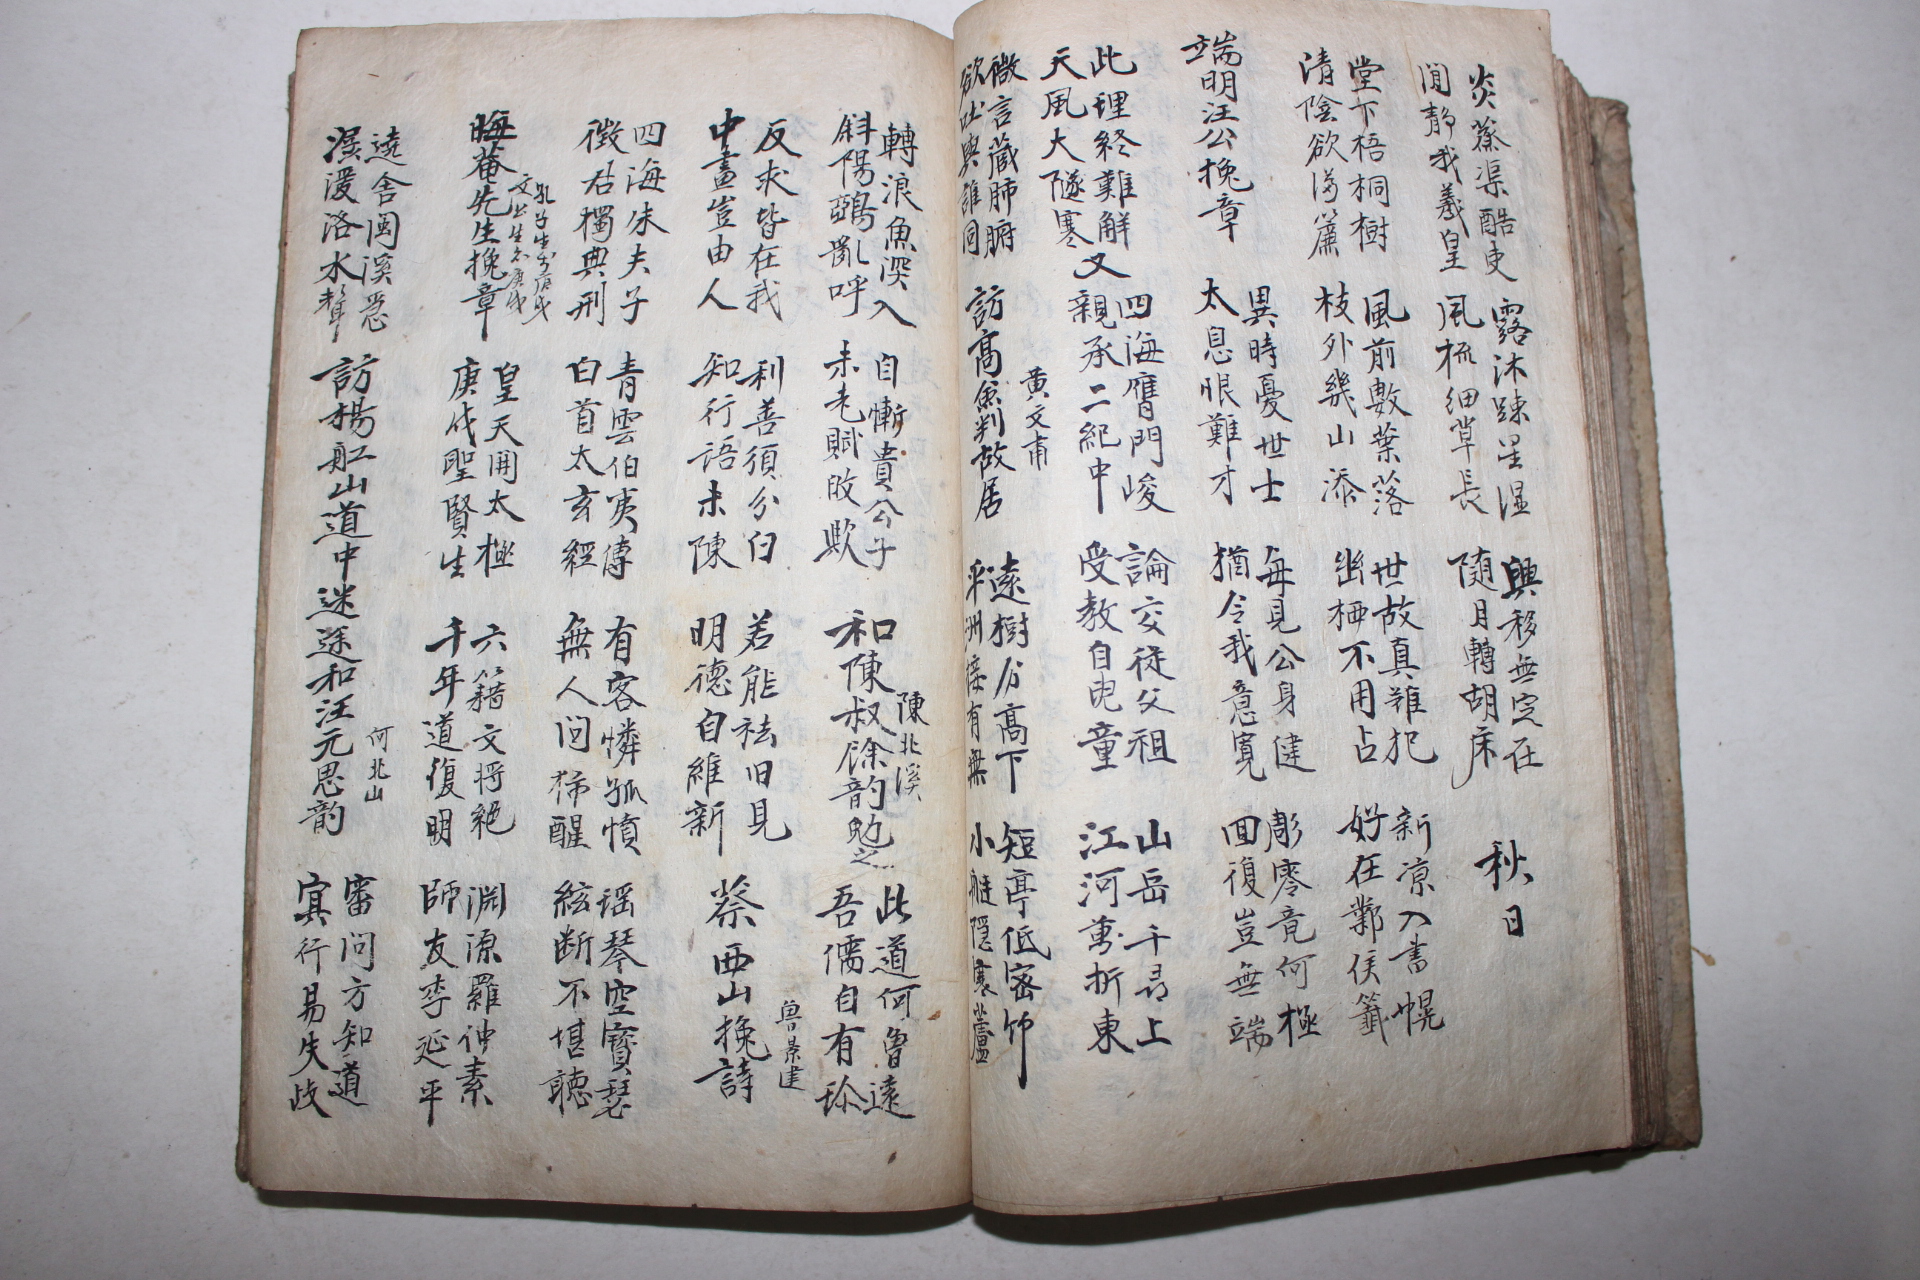 炎蒸渠酷吏
閒靜我羲皇
露沐踈星濕
風梳細草長
興移無定在
隨月轉胡床
秋日
堂下梧桐樹
清陰欲滿簾
風前數葉落
枝外幾山添
世故真難犯
幽栖不用占
新凉入書幌
好在鄴侯籤
端明汪公挽章
異時憂世士
太息恨難才
每見公身健
猶令我意寬
彫零竟何極
回復豈無端
此理終難解
天風大隧寒
又
四海膺門峻
親承二紀中
論交從父祖
受教自兒童
山岳千尋上
江河萬折東
微言藏肺腑
欲吐與誰同
訪高魚判故居
黃文甫
遠樹分高下
平洲接有無
短亭低密竹
小艇隱寒蘆
轉浪魚深入
斜陽鵶亂呼
自慚貴公子
未老賦敀歟
和陳叔馀韵勉之
陳北溪
此道何曾遠
吾儒自有珍
反求皆在我
中畫豈由人
利善須分白
知行語未陳
若能祛旧見
明德自維新
蔡西山挽詩
曾景建
四海朱夫子
徵君獨典刑
青雲伯夷傳
白首太玄經
有客憐孤憤
無人问醒
瑤琴空寶瑟
絃断不堪聽
晦菴先生挽章
孔子生於庚戌
文公生亦庚戌
皇天開太極
庚戌聖賢生
六籍文將絕
千年道復明
淵源羅仲素
師友李延平
遶舍閩溪急
潺湲洛水聲
訪楊船山道中迷途和汪元思韵
何北山
審问方知道
冥行易失歧